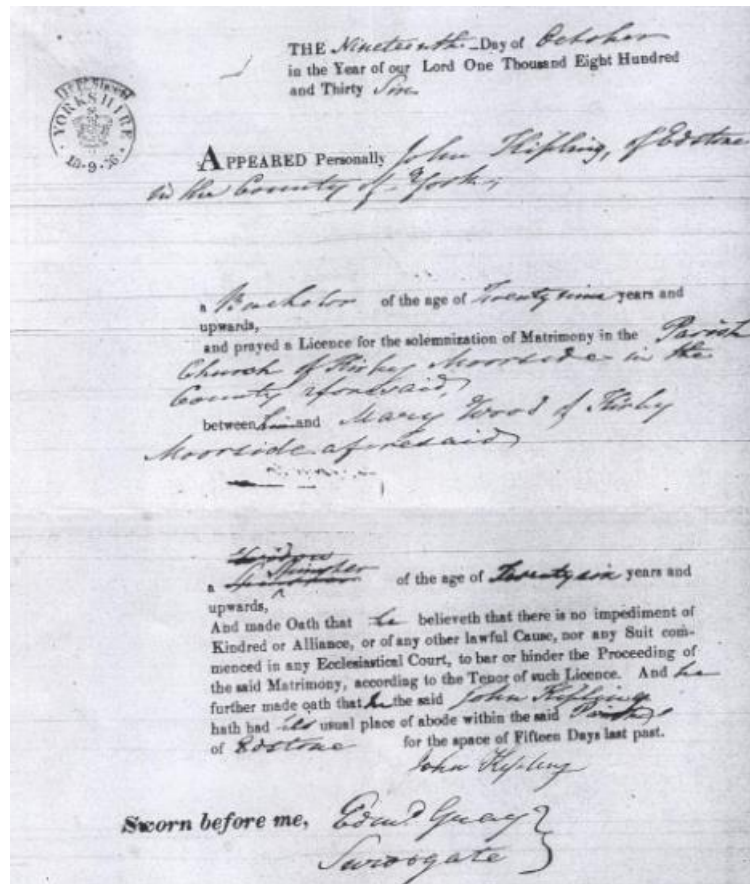 THE Nineteenth Day of October
in the Year of our Lord One Thousand Eight Hundred
and Thirty Six
YORKSHIRE
APPEARED Personally John Kipling, of Edstone
in the County of York,
a Bachelor of the age of Twenty nine years and
upwards,
and prayed a Licence for the solemnization of Matrimony in the Parish
Church of Kirby Moorside in the
County aforesaid,
between him and Mary Wood of Kirby
Moorside aforesaid
Widow
a Spinster of the age of Twenty six years and
upwards,
And made Oath that he believeth that there is no impediment of
Kindred or Alliance, or of any other lawful Cause, nor any Suit com-
menced in any Ecclesiastical Court, to bar or hinder the Proceeding of
the said Matrimony, according to the Tenor of such Licence. And he
further made oath that he the said John Kipling
hath had his usual place of abode within the said Parish
of Edstone for the space of Fifteen Days last past.
John Kipling
Sworn before me, Edmd. Gray
Surrogate